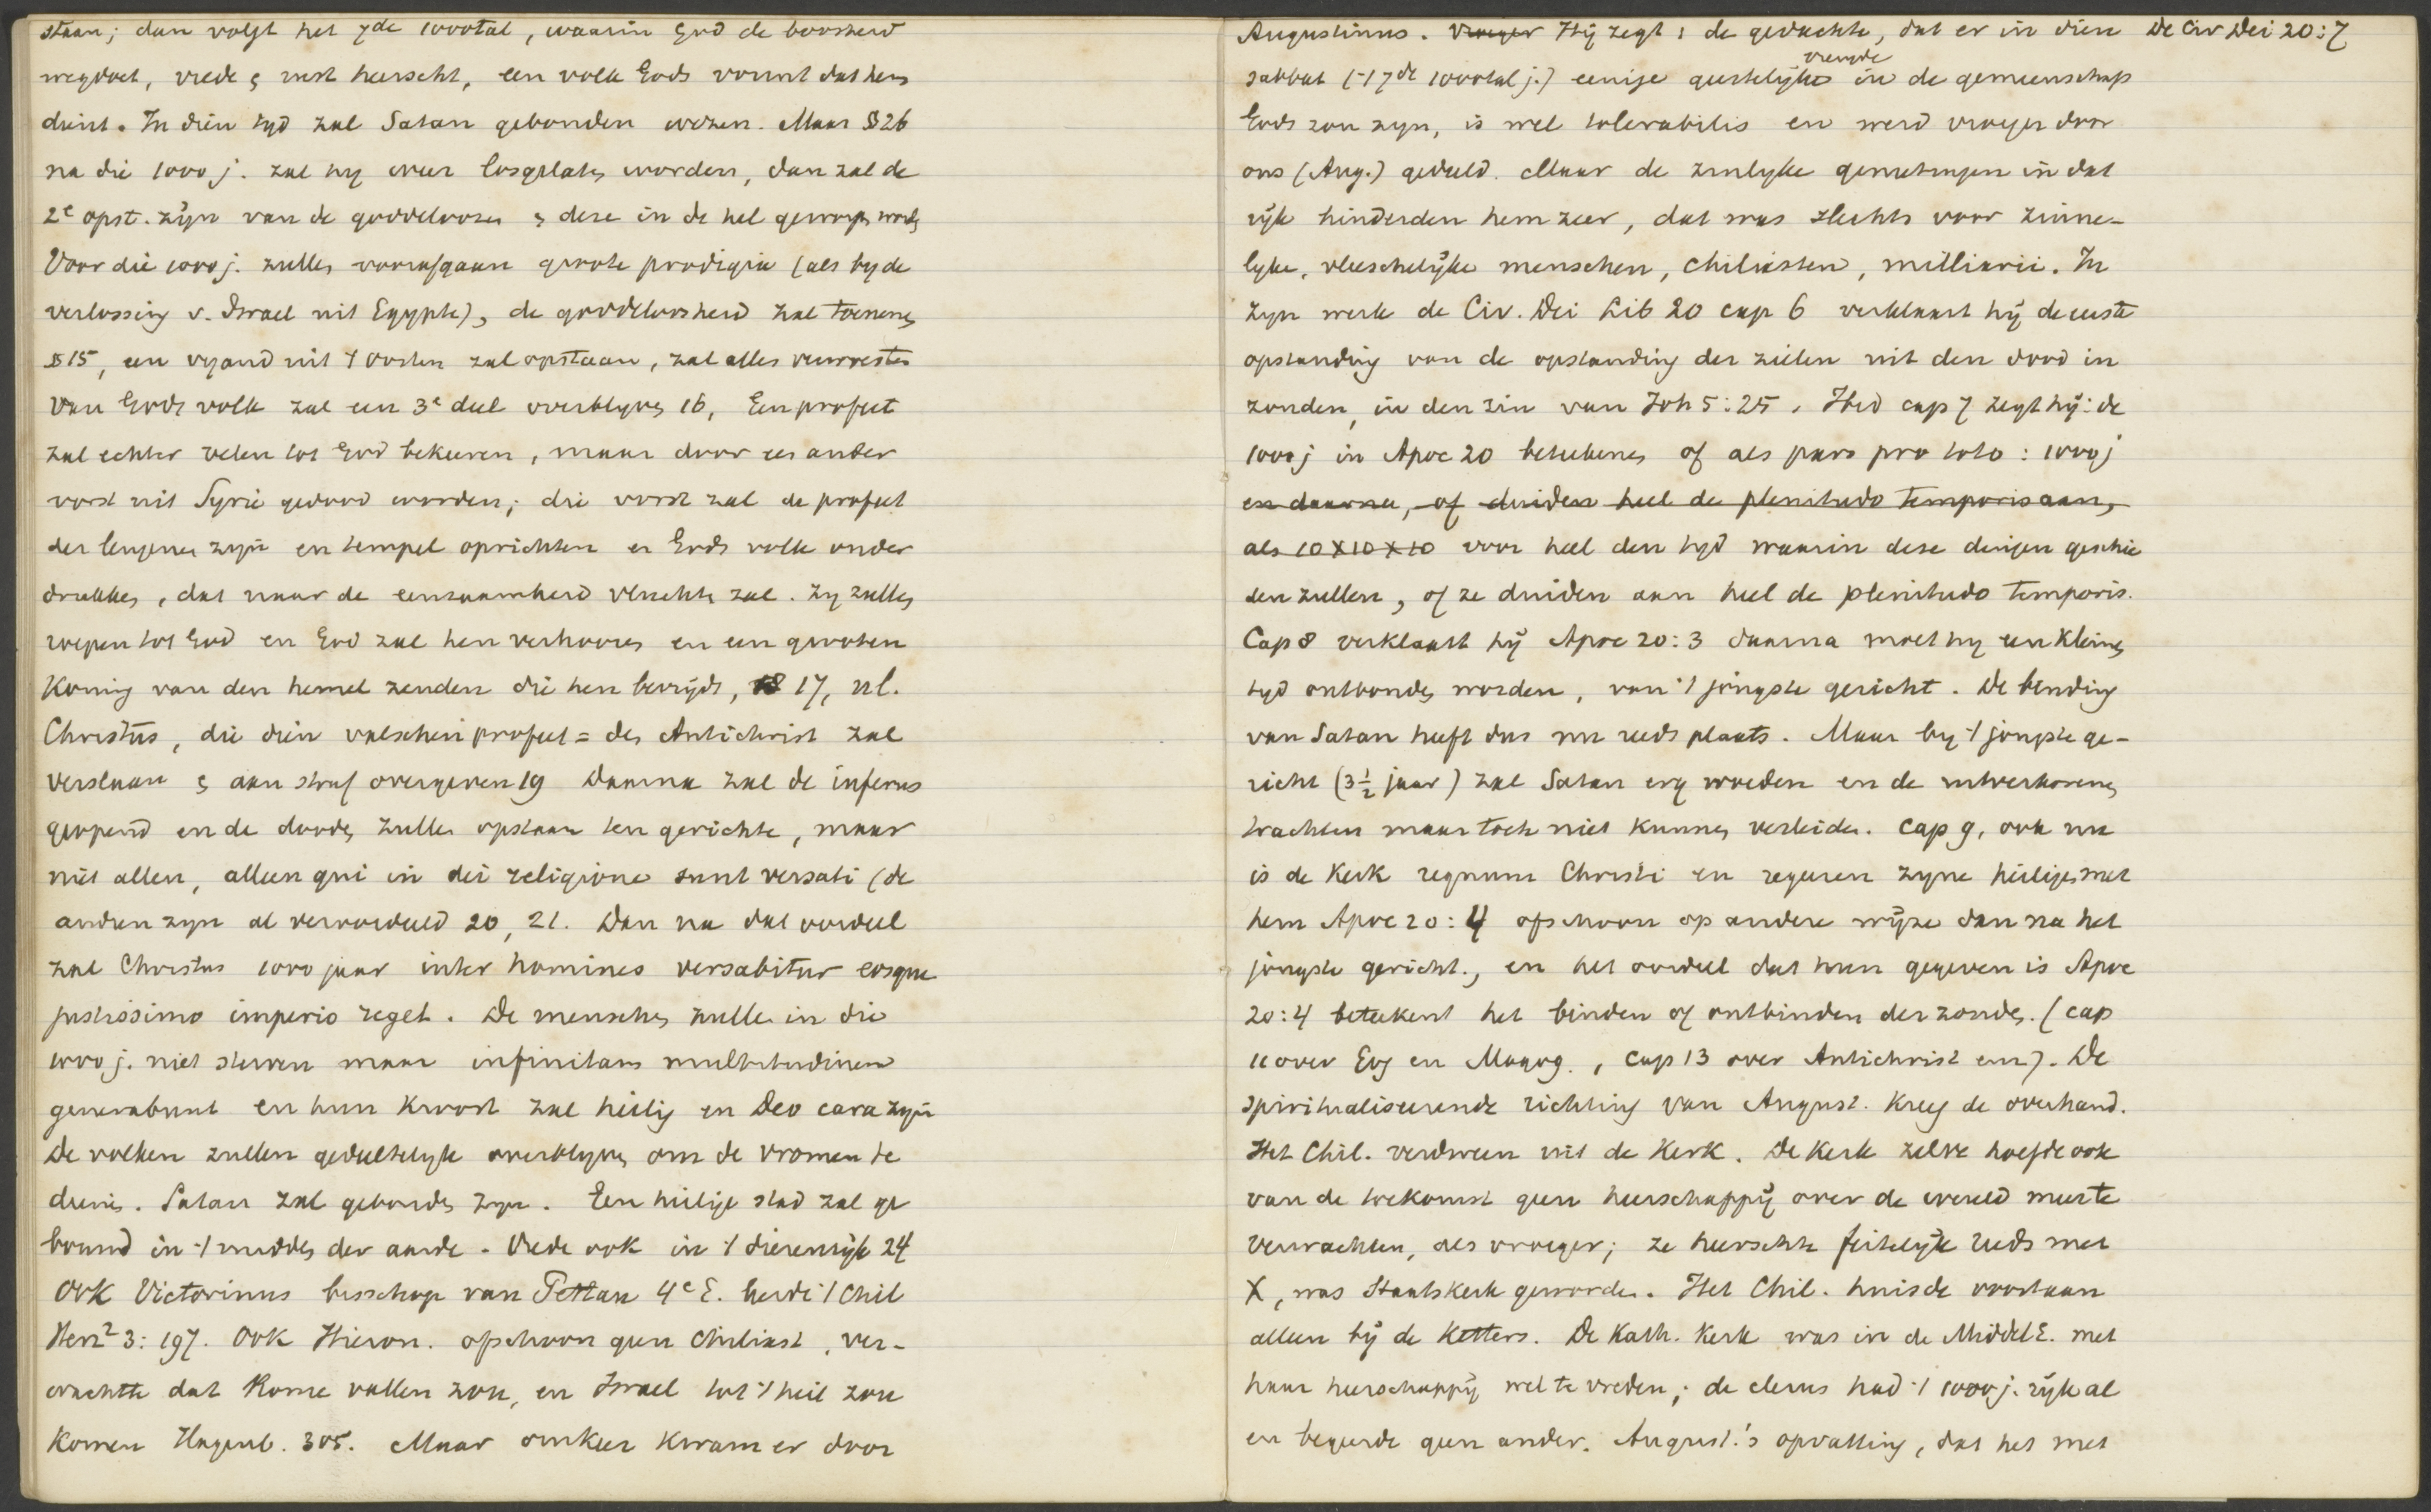 staan; dan volgt het 7de 1000tal, waarin God de boosheid
wegdoet, vrede & rust heerscht, een volk Gods vormt dat hem
dient. In dien tyd zal Satan gebonden wezen. Maar § 26
na die 1000 j. zal hy weer losgelaten worden, dan zal de
2e opst. zijn van de goddeloozen & deze in de hel geworpen worden
Voor die 1000 j. zullen voorafgaan groote prodigia (als by de
verlossing v. Israel uit Egypte), de goddeloosheid zal toenemen
§ 15, een vyand uit 't Oosten zal opstaan, zal alles verwoesten
Van Gods volk zal een 3e deel overblyven 16, Een profeet
zal echter velen tot God bekeeren, maar door een ander
vorst uit Syrie gedood worden; die vorst zal de profeet
der leugenen zijn en tempel oprichten en Gods volk onder
drukken, dat naar de eenzaamheid vluchten zal. Zy zullen
roepen tot God en God zal hen verhooren en een grooten
Koning van den hemel zenden die hen bevrijdt, 17, nl.
Christus, die dien valschen profeet = den Antichrist zal
verslaan & aan straf overgeven 19 Daarna zal de infernus
geopend en de dooden zullen opstaan ten gerichte, maar
niet allen, alleen qui in dei religione sunt versati (de
anderen zyn al veroordeeld 20, 21. Dan na dat oordeel
zal Christus 1000 jaar inter homines versabitur eosque
justissimo imperio reget. De menschen zullen in die
1000 j. niet sterven maar infinitam multitudinem
generabunt en hun kroost zal heilig en Deo cara zijn
De volken zullen gedeeltelyk overblyven om de vromen te
dienen. Satan zal gebonden zyn. Een heilige stad zal ge
bouwd in 't midden der aarde. Vrede ook in 't dierenrijk 24
Ook Victorinus bisschop van Pettau 4e E. leerde 't Chil
Herz² 3: 197. Ook Hieron. ofschoon geen chiliast, ver-
wachtte dat Rome vallen zou, en Israel tot 't heil zou
komen Hagenb. 305. Maar omkeer kwam er door
Augustinus. Vroeger Hij zegt: de gedachte, dat er in dien De Civ Dei 20:7
vreugde
sabbat (= 't 7de 1000tal j.) eenige geestelijke in de gemeenschap
Gods zou zyn, is wel tolerabilis en werd vroeger door
ons (Aug.) geduld. Maar de zinlyke genietingen in dat
rijk hinderden hem zeer, dat was slechts voor zinne-
lyke, vleeschelijke menschen, Chiliasten, milliarii. In
zyn werk de Civ. Dei Lib 20 cap 6 verklaart hij de eerste
opstanding van de opstanding der zielen uit den dood in
zonden, in den zin van Joh 5:25. Ibid cap 7 zegt hij: de
1000 j in Apoc 20 beteekenen of als pars pro toto: 1000 j
en daarna, of duiden heel de plenitudo temporis aan,
als 10 X 10 X 10 voor heel den tyd waarin deze dingen geschie
den zullen, of ze duiden aan heel de plenitudo temporis.
Cap 8 verklaart hij Apoc 20:3 daarna moet hy een kleinen
tyd ontbonden worden, van 't jongste gericht. De binding
van Satan heeft dus nu reeds plaats. Maar by 't jongste ge-
richt (3 1/2 jaar) zal Satan erg woeden en de uitverkorenen
trachten maar toch niet kunnen verleiden. cap 9, ook nu
is de Kerk regnum Christi en regeeren zyne heiligen met
hem Apoc 20:4 ofschoon op andere wijze dan na het
jongste gericht., en het oordeel dat hun gegeven is Apoc
20:4 beteekent het binden of ontbinden der zonden. (cap
11 over Gog en Magog., cap 13 over Antichrist enz). De
spiritualiseerende richting van August. kreeg de overhand.
Het Chil. verdween uit de Kerk. De Kerk zelve hoefde ook
van de toekomst geen heerschappij over de wereld meer te
verwachten, als vroeger; ze heerschte feitelijk reeds met
X, was Staatskerk geworden. Het Chil. huisde voortaan
alleen bij de Ketters. De Kath. Kerk was in de Middel E. met
haar heerschappij wel te vreden; de clerus had 't 1000 j. rijk al
en begeerde geen ander. August.'s opvatting, dat het met